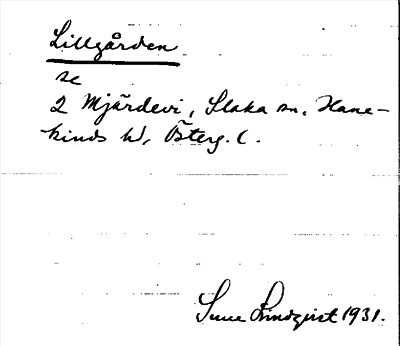 Lillgården
se
2 Mjärdevi, Slaka sn, Hane-
kinds hd, Österg. l.
Sune Lindqvist 1931.